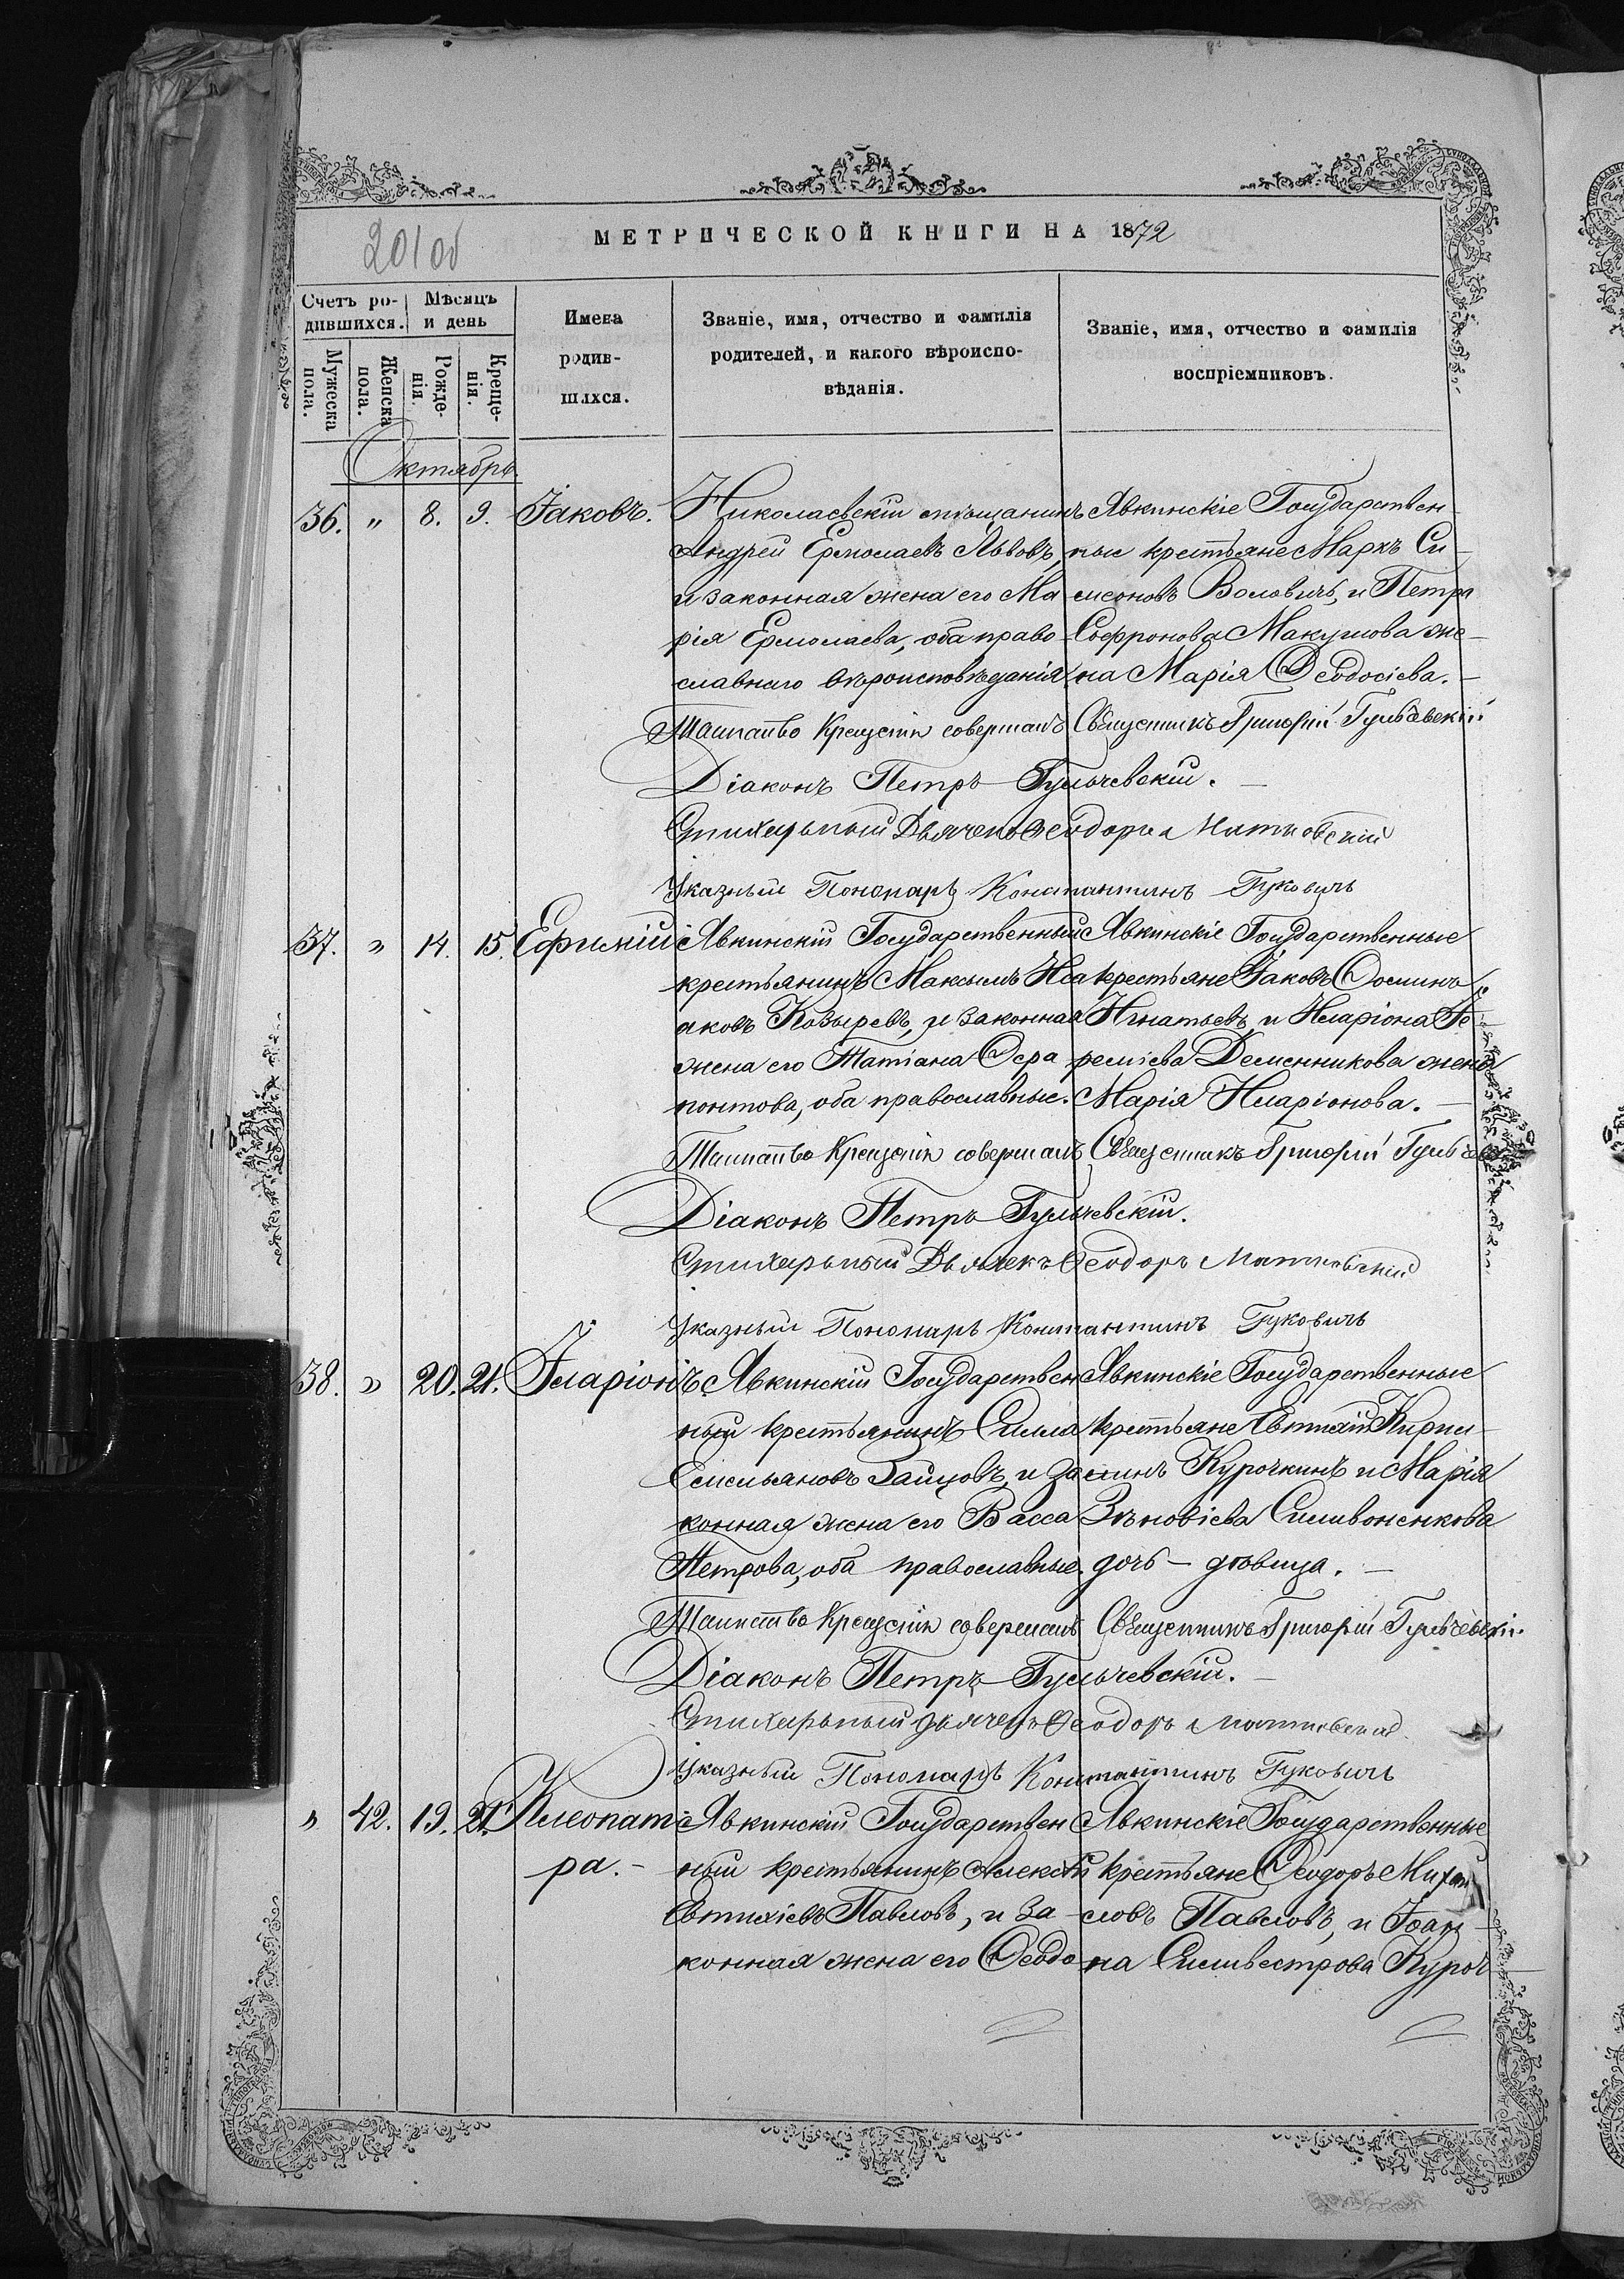 201 об
МЕТРИЧЕСКОЙ КНИГИ НА 1872
Счетъ ро-
дившихся.
Мѣсяцъ
и день
Мужеска
пола.
Женска
пола.
Рожде-
нія.
Креще-
нія.
Имена
родив-
шихся.
Званіе, имя, отчество и фамилія
родителей, и какого вѣроиспо-
вѣданія.
Званіе, имя, отчество и фамилія
воспріемниковъ.
Октябрь.
36. " 8. 9. Іаковъ.
Николаевскій мѣщанинъ
Андрей Ермолаевъ Львовъ,
и законная жена его Ма-
рія Ермолаева, оба право-
славнаго вѣроисповѣданія.
Явкинскіе Государствен-
ные крестьяне Маркъ Си-
меоновъ Воловичъ, и Петра
Софронова Макушова же-
на Марія Ѳеодосіева.
Таинство Крещенія совершалъ Священникъ Григорій Гульчевскій
Діаконъ Петръ Гульчевскій.
Стихарный Дьячекъ Ѳеодоръ Матковскій
Указный Пономарь Константинъ Гуковичъ
37. " 14. 15. Ефимій
Явкинскій Государственный
крестьянинъ Максимъ Иса-
аковъ Козыревъ, и законная
жена его Татіана Ѳера-
понтова, оба православные.
Явкинскіе Государственные
крестьяне Іаковъ Ѳоминъ
Игнатьевъ, и Иларіона Іе-
реміева Деменникова жена
Марія Иларіонова.
Таинство Крещенія совершалъ Священникъ Григорій
Діаконъ Петръ Гульчевскій.
Стихарный Дьячекъ Ѳеодоръ Матковскій
Указный Пономарь Константинъ Гуковичъ
38. " 20. 21. Иларіонъ
Явкинскій Государствен-
ный крестьянинъ Силла
Емельяновъ Зайцовъ, и за-
конная жена его Васса
Петрова, оба православные.
Явкинскіе Государственные
крестьяне Евтихій Кирил-
линъ Курочкинъ и Марія
Зѣновіева Силивоненкова
дочь - дѣвица.
Таинство Крещенія совершалъ Священникъ Григорій Гульчевскій
Діаконъ Петръ Гульчевскій.
Стихарный Дьячекъ Ѳеодоръ Матковскій
Указный Пономарь Константинъ Гуковичъ
" 42. 19. 21. Клеопат-
ра.
Явкинскій Государствен-
ный крестьянинъ Алексѣй
Евтихіевъ Павловъ, и за-
конная жена его Ѳеодо-
Явкинскіе Государственные
крестьяне Ѳеодоръ Михай-
ловъ Павловъ, и Іоан-
на Сильвестрова Куроч-